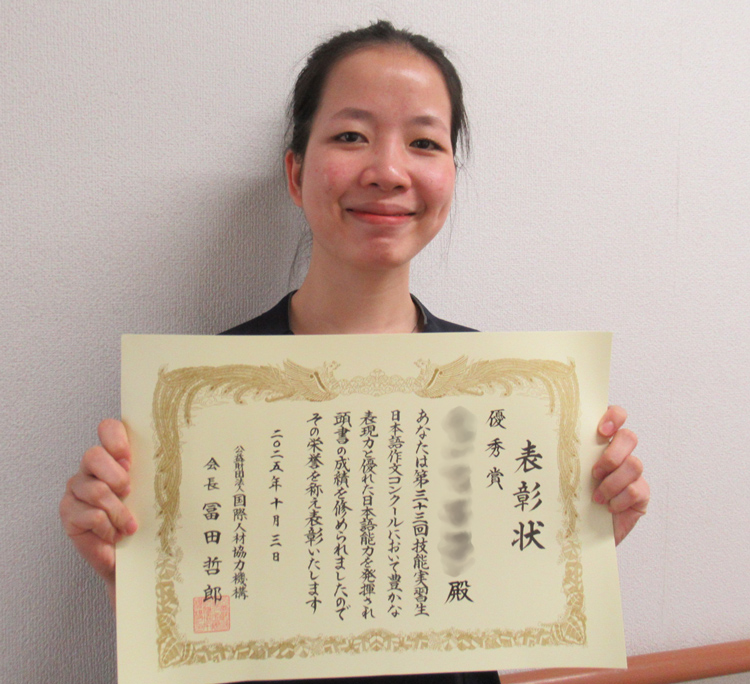 表彰状
優秀賞
殿
あなたは第三十三回技能実習生
日本語作文コンクールにおいて豊かな
表現力と優れた日本語能力を発揮され
頭書の成績を修められましたので
その栄誉を称え表彰いたします
二〇二五年十月三日
公益財団法人国際人材協力機構
会長 冨田哲郎